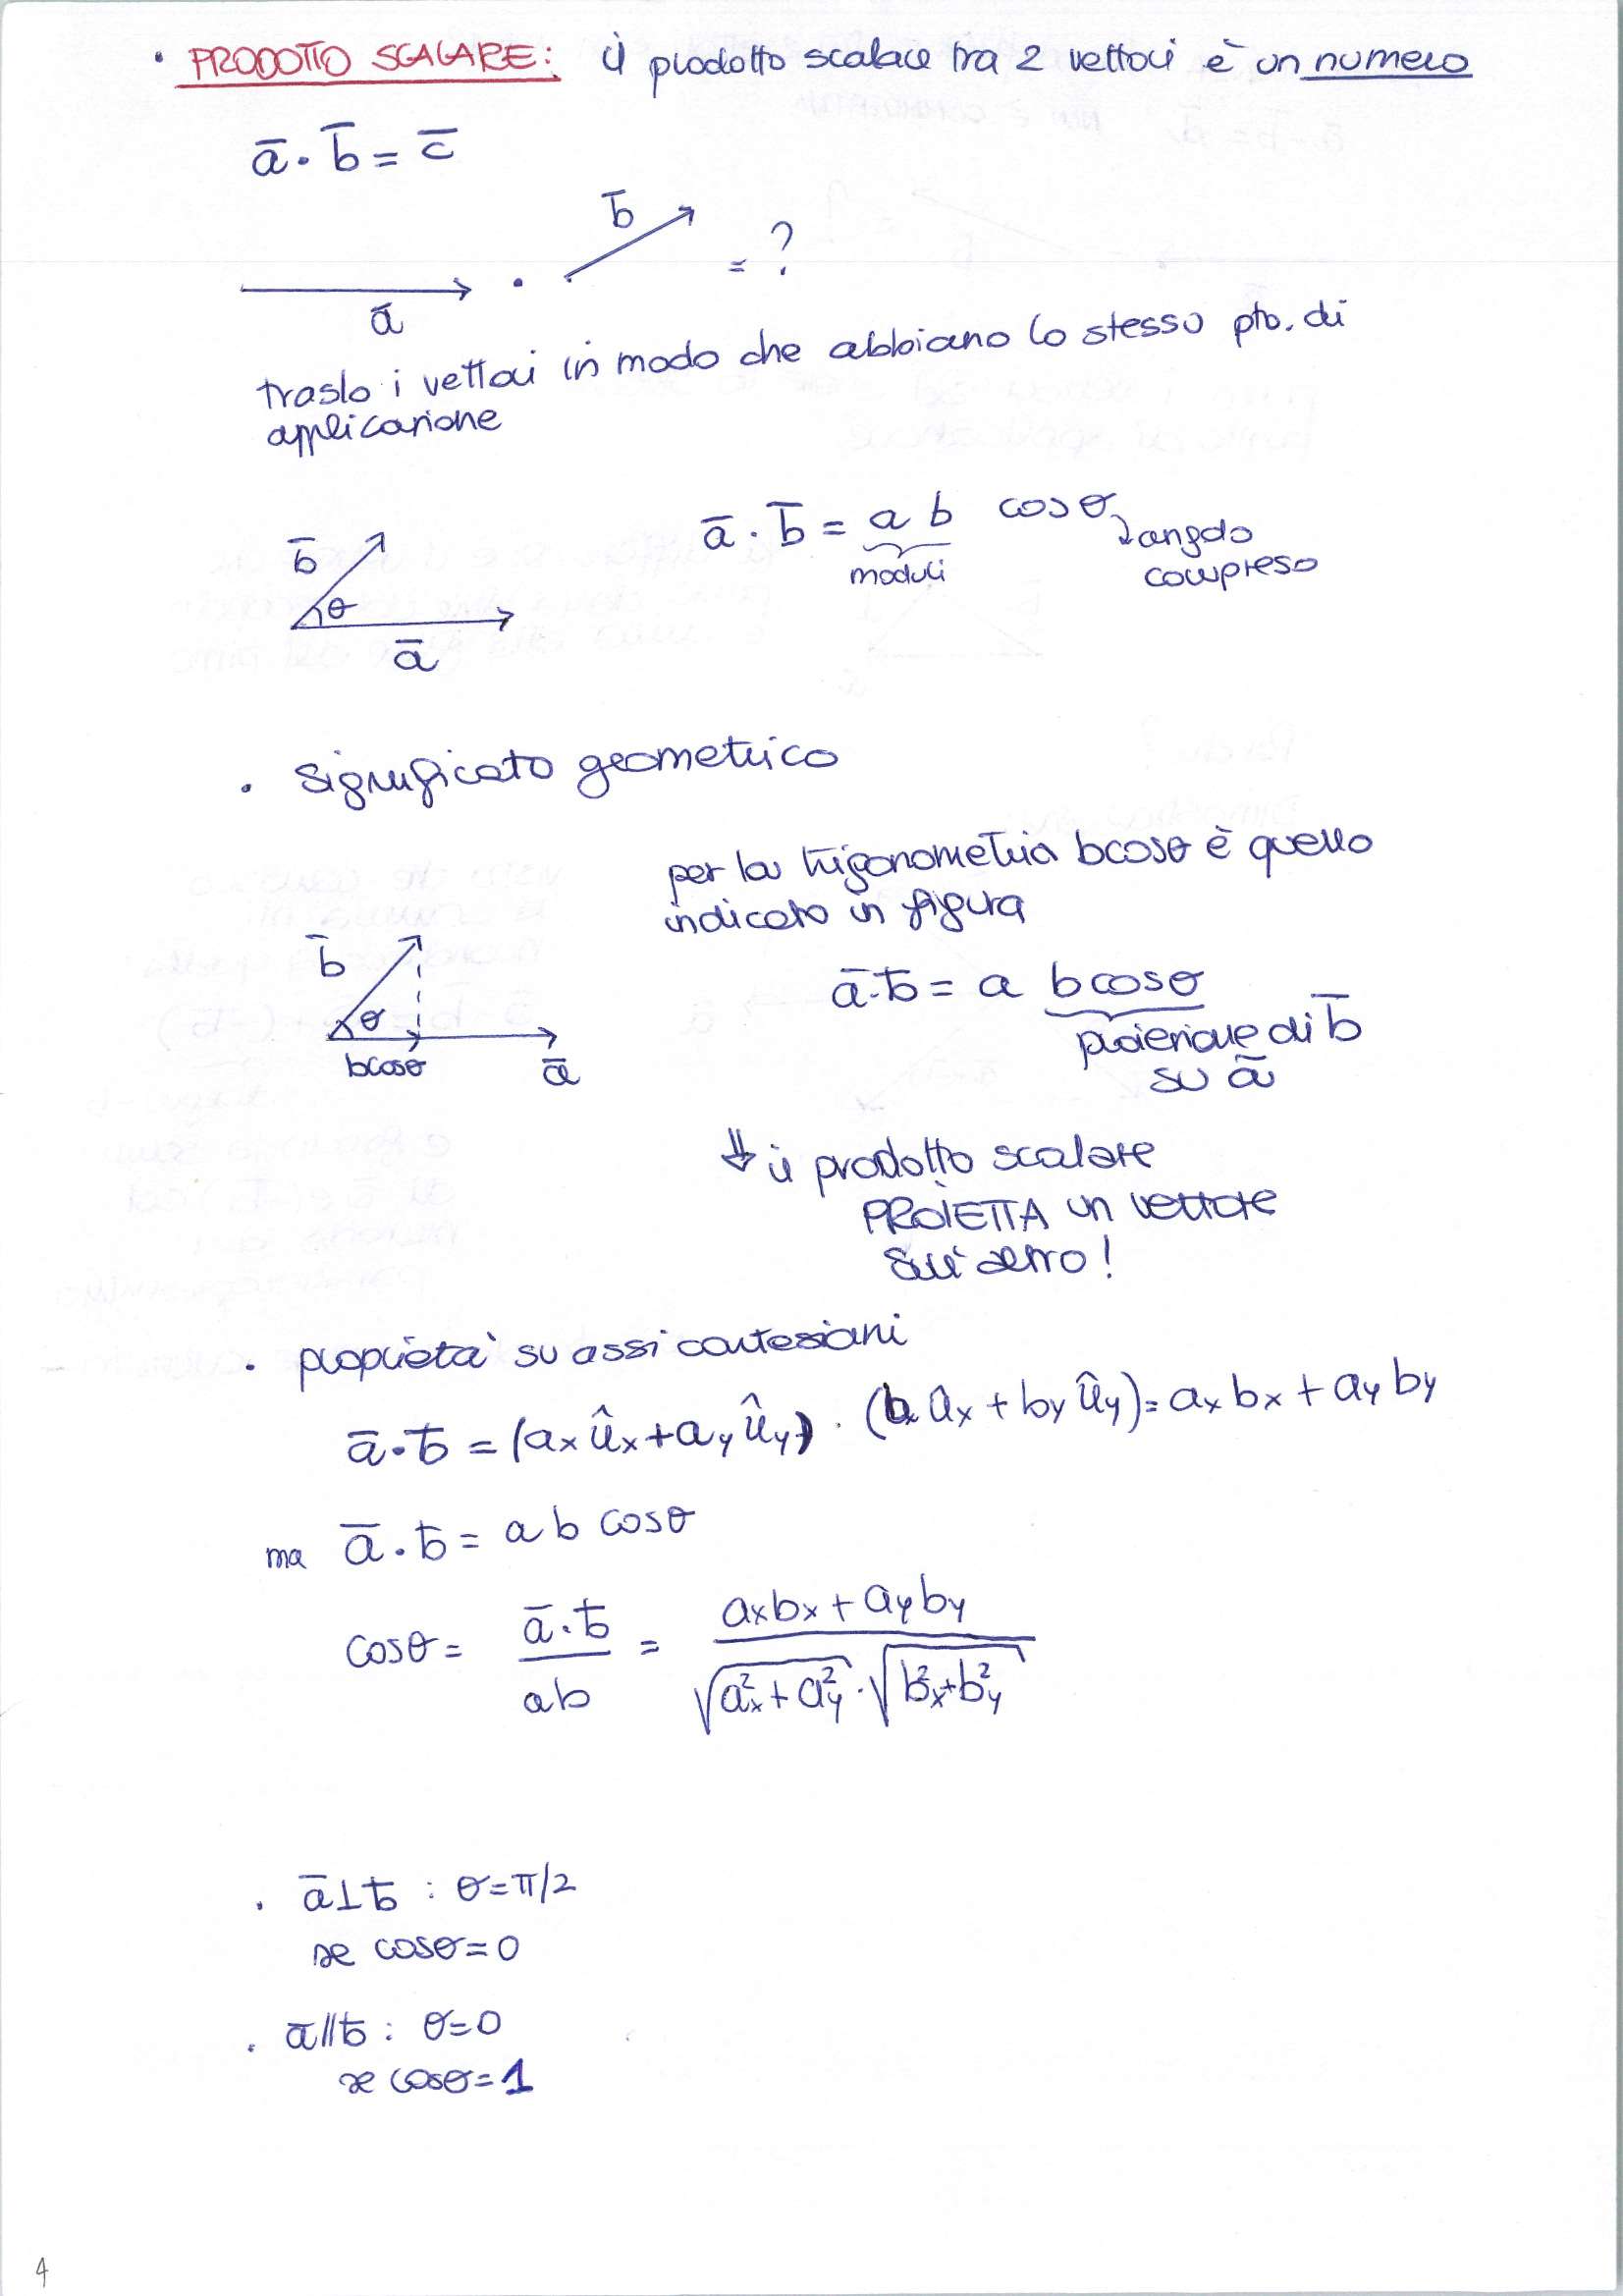 · PRODOTTO SCALARE: il prodotto scalare tra 2 vettori è un numero
a̅ · b̅ = c̅
b̅
= ?
a̅
traslo i vettori in modo che abbiano lo stesso pto. di
applicazione
a̅ · b̅ = a b cosθ
moduli
angolo
compreso
b̅
θ
a̅
· significato geometrico
per la trigonometria bcosθ è quello
indicato in figura
b̅
θ
bcosθ
a̅
a̅·b̅ = a bcosθ
proiezione di b̅
su a̅
⇓ il prodotto scalare
PROIETTA un vettore
sull'altro!
· proprietà su assi cartesiani
a̅·b̅ = (aₓ ûₓ + a_y û_y) · (bₓ ûₓ + b_y û_y) = aₓ bₓ + a_y b_y
ma a̅ · b̅ = a b cosθ
cosθ = a̅·b̅ / ab = (aₓbₓ + a_y b_y) / (√(aₓ² + a_y²) · √(bₓ² + b_y²))
· a̅ ⊥ b̅ : θ = π/2
se cosθ = 0
· a̅ // b̅ : θ = 0
se cosθ = 1
4